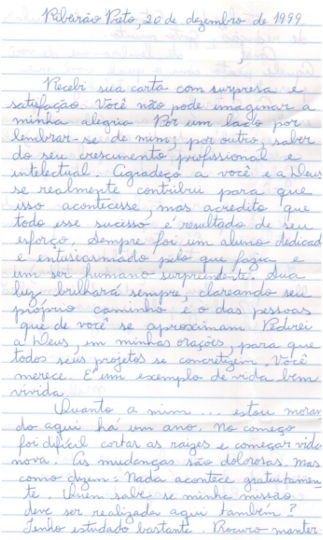 Ribeirão Preto, 20 de dezembro de 1999
,
Recebi sua carta com surpresa e
satisfação. Você não pode imaginar a
minha alegria. Por um lado por
lembrar-se de mim; por outro, saber
do seu crescimento profissional e
intelectual. Agradeço a você e a Deus
se realmente contribui para que
isso acontecesse, mas acredito que
todo esse sucesso é resultado de seu
esforço. Sempre foi um aluno dedicad
e entusiasmado pelo que fazia e
um ser humano surpreendente. Sua
luz brilhará sempre, clareando seu
próprio caminho e o das pessoas
que de você se aproximam. Pedirei
a Deus, em minhas orações, para que
todos seus projetos se concretizem. Você
merece. É um exemplo de vida bem
vivida.
Quanto a mim... estou moran
do aqui há um ano. No começo
foi difícil cortas as raízes e começar vida
nova. As mudanças são dolorosas. Mas
como dizem: Nada acontece gratuitamen
te. Quem sabe se minha missão
deve ser realizada aqui também?
Tenho estudado bastante. Procuro manter